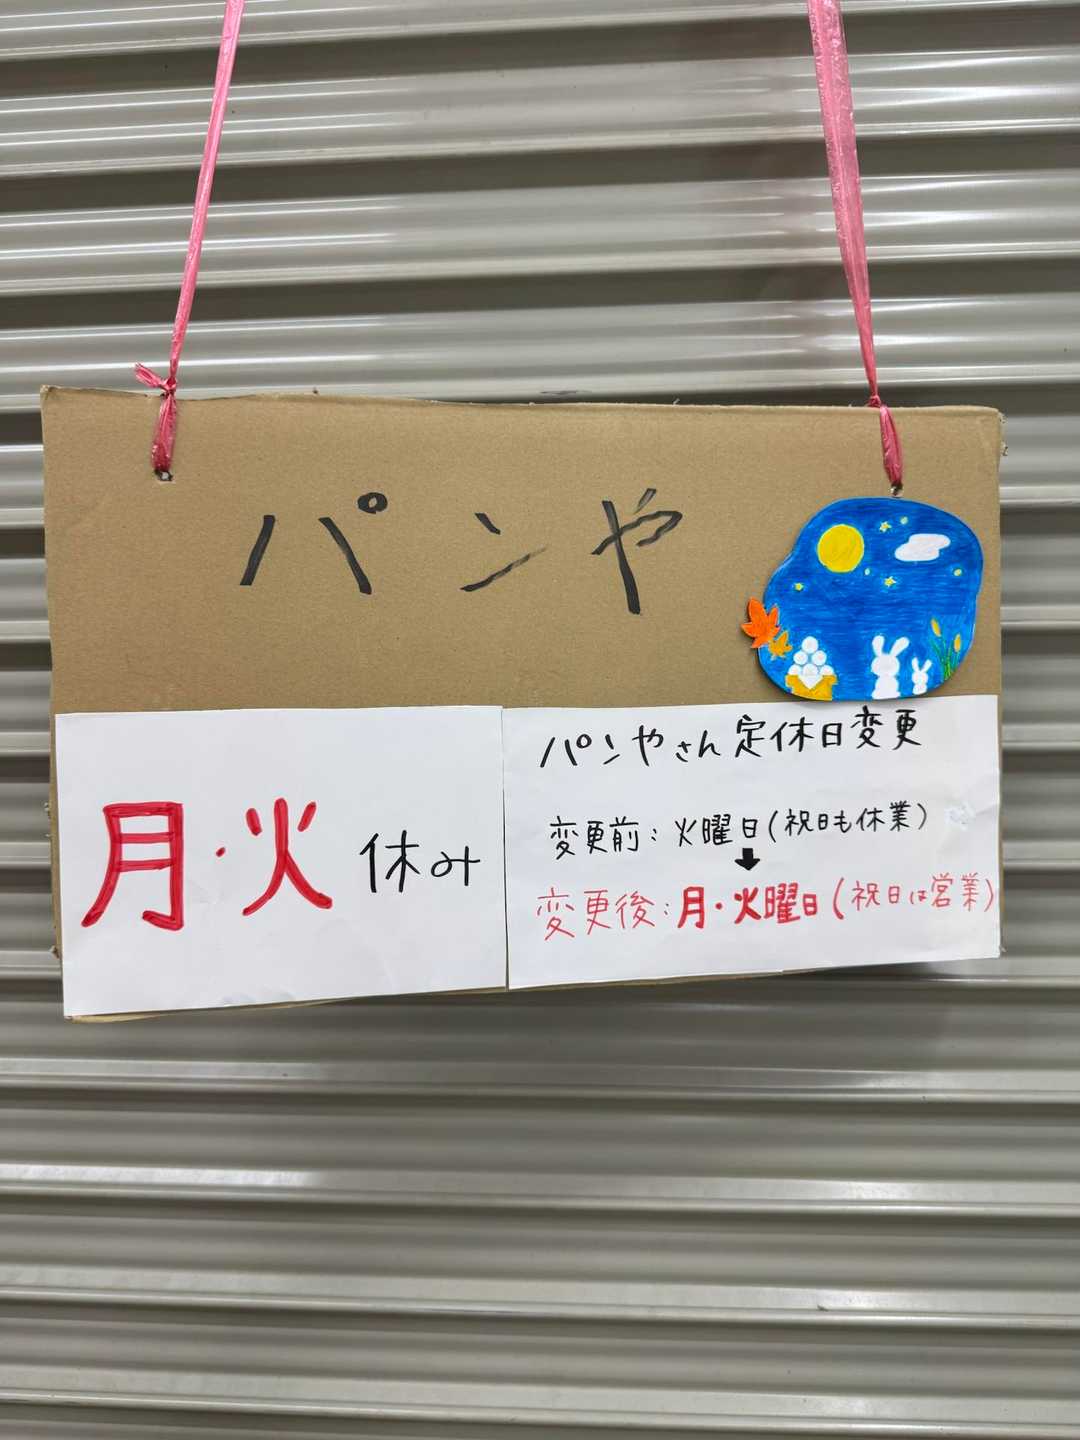 パンや
月・火 休み
パンやさん定休日変更
変更前:火曜日(祝日も休業)
⬇
変更後:月・火曜日(祝日は営業)